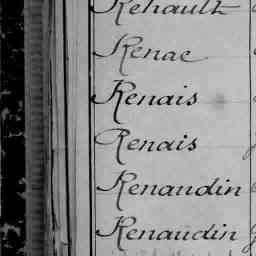 Rehault
Renac
Renais
Renais
Renaudin
Renaudin